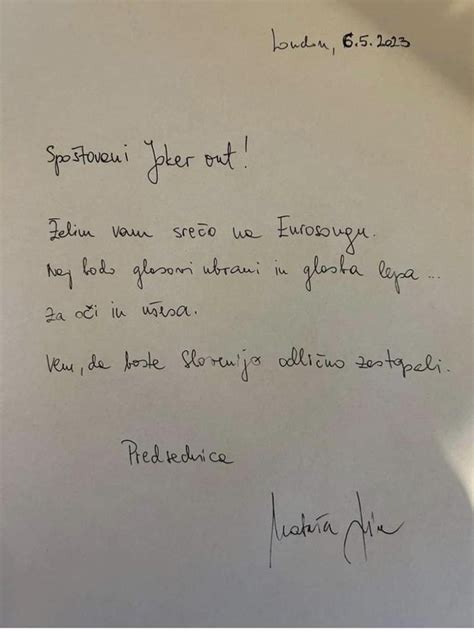 London, 6.5.2023
Spoštovani Joker out!
Želim vam srečo na Eurosongu.
Naj bodo glasovi ubrani in glasba lepa ...
za oči in ušesa.
Vem, da boste Slovenijo odlično zastopali.
Predsednica
Nataša